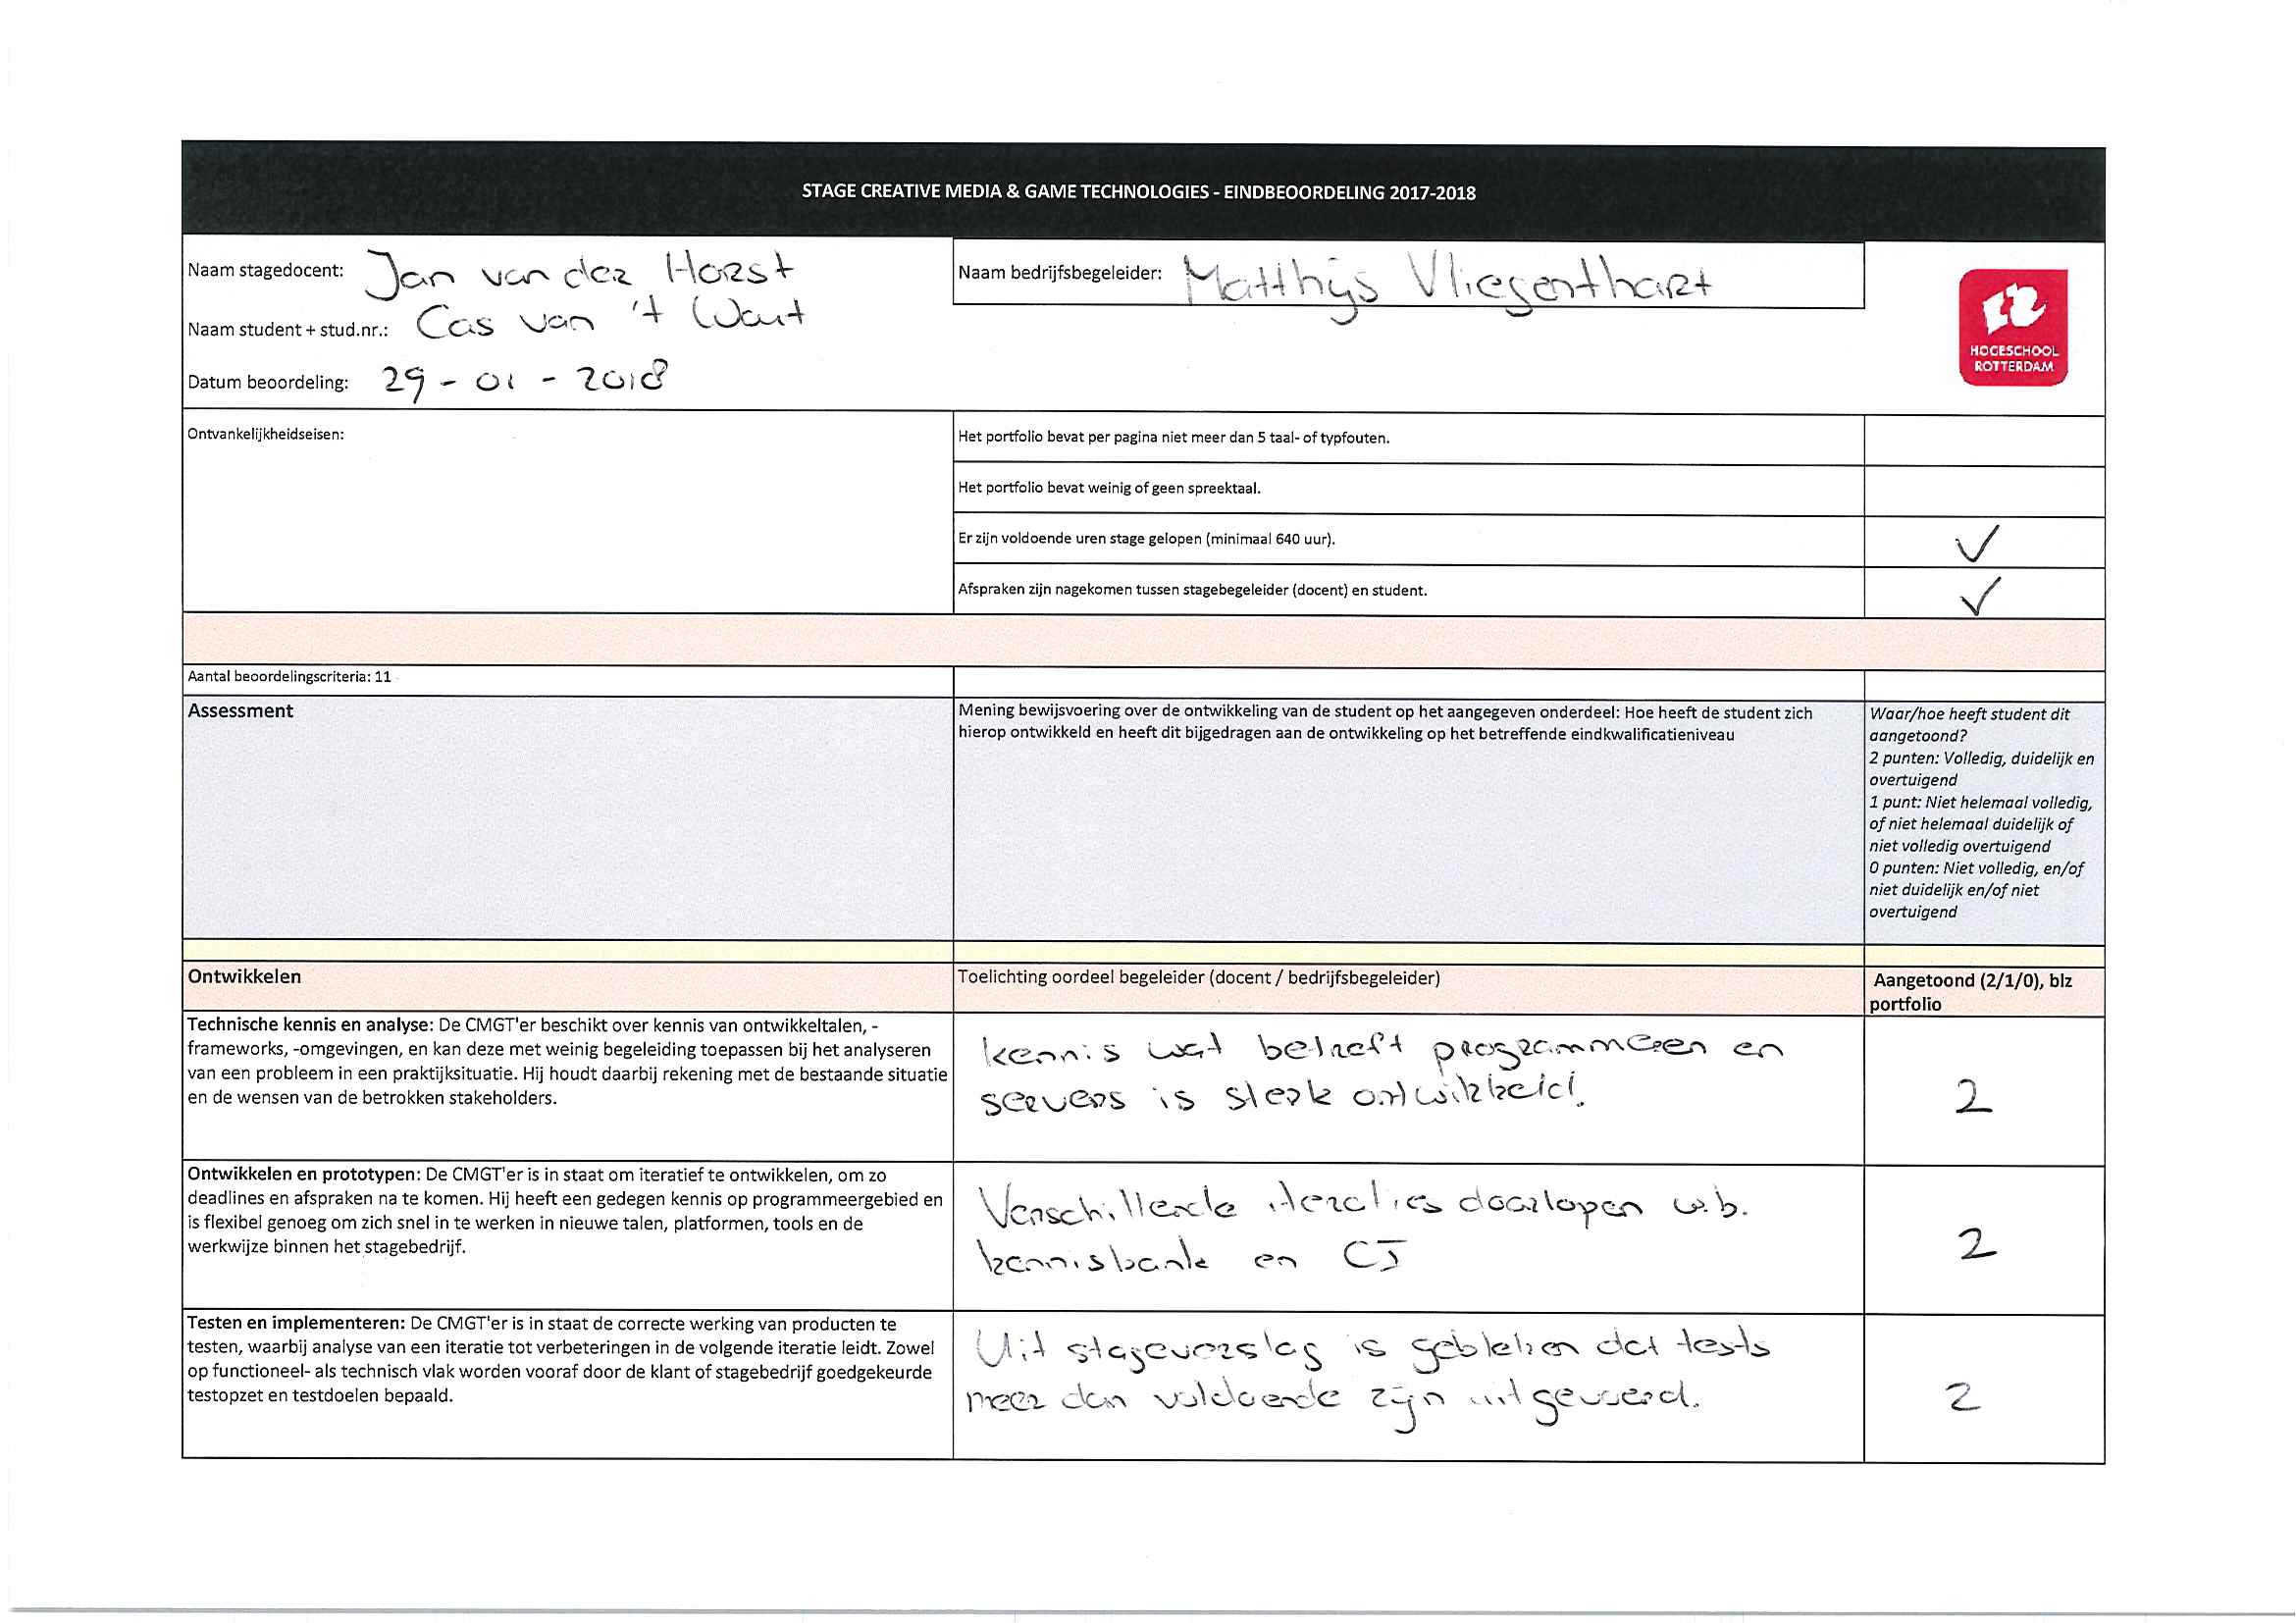 STAGE CREATIVE MEDIA & GAME TECHNOLOGIES - EINDBEOORDELING 2017-2018
Naam stagedocent: Jan van der Horst
Naam bedrijfsbegeleider: Matthijs Vliegenthart
Naam student + stud.nr.: Cas van 't Wout
Datum beoordeling: 29 - 01 - 2018
HOGESCHOOL
ROTTERDAM
Ontvankelijkheidseisen:
Het portfolio bevat per pagina niet meer dan 5 taal- of typfouten.
Het portfolio bevat weinig of geen spreektaal.
Er zijn voldoende uren stage gelopen (minimaal 640 uur). ✓
Afspraken zijn nagekomen tussen stagebegeleider (docent) en student. ✓
Aantal beoordelingscriteria: 11
Assessment
Mening bewijsvoering over de ontwikkeling van de student op het aangegeven onderdeel: Hoe heeft de student zich
hierop ontwikkeld en heeft dit bijgedragen aan de ontwikkeling op het betreffende eindkwalificatieniveau
Waar/hoe heeft student dit
aangetoond?
2 punten: Volledig, duidelijk en
overtuigend
1 punt: Niet helemaal volledig,
of niet helemaal duidelijk of
niet volledig overtuigend
0 punten: Niet volledig, en/of
niet duidelijk en/of niet
overtuigend
Ontwikkelen
Toelichting oordeel begeleider (docent / bedrijfsbegeleider)
Aangetoond (2/1/0), blz
portfolio
Technische kennis en analyse: De CMGT'er beschikt over kennis van ontwikkeltalen, -
frameworks, -omgevingen, en kan deze met weinig begeleiding toepassen bij het analyseren
van een probleem in een praktijksituatie. Hij houdt daarbij rekening met de bestaande situatie
en de wensen van de betrokken stakeholders.
kennis wat betreft programmeren en
servers is sterk ontwikkeld!
2
Ontwikkelen en prototypen: De CMGT'er is in staat om iteratief te ontwikkelen, om zo
deadlines en afspraken na te komen. Hij heeft een gedegen kennis op programmeergebied en
is flexibel genoeg om zich snel in te werken in nieuwe talen, platformen, tools en de
werkwijze binnen het stagebedrijf.
Verschillende iteraties doorlopen w.b.
kennisbank en CJ
2
Testen en implementeren: De CMGT'er is in staat de correcte werking van producten te
testen, waarbij analyse van een iteratie tot verbeteringen in de volgende iteratie leidt. Zowel
op functioneel- als technisch vlak worden vooraf door de klant of stagebedrijf goedgekeurde
testopzet en testdoelen bepaald.
Uit stageverslag is gebleken dat tests
meer dan voldoende zijn uitgevoerd.
2